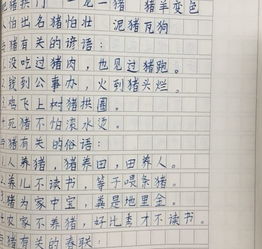 猪拱门 一龙一猪 猪羊变色
人怕出名猪怕壮 泥猪瓦狗
与猪有关的谚语:
1.没吃过猪肉,也见过猪跑。
2.钱到公事办,火到猪头烂。
3.鸡飞上树猪拱圈。
4.死猪不怕滚水烫。
与猪有关的俗语:
1.人养猪,猪养田,田养人。
2.养儿不读书,等于喂条猪。
3.猪为家中宝,粪是地里金。
4.农家不养猪,好比秀才不读书。
与猪有关的春联: